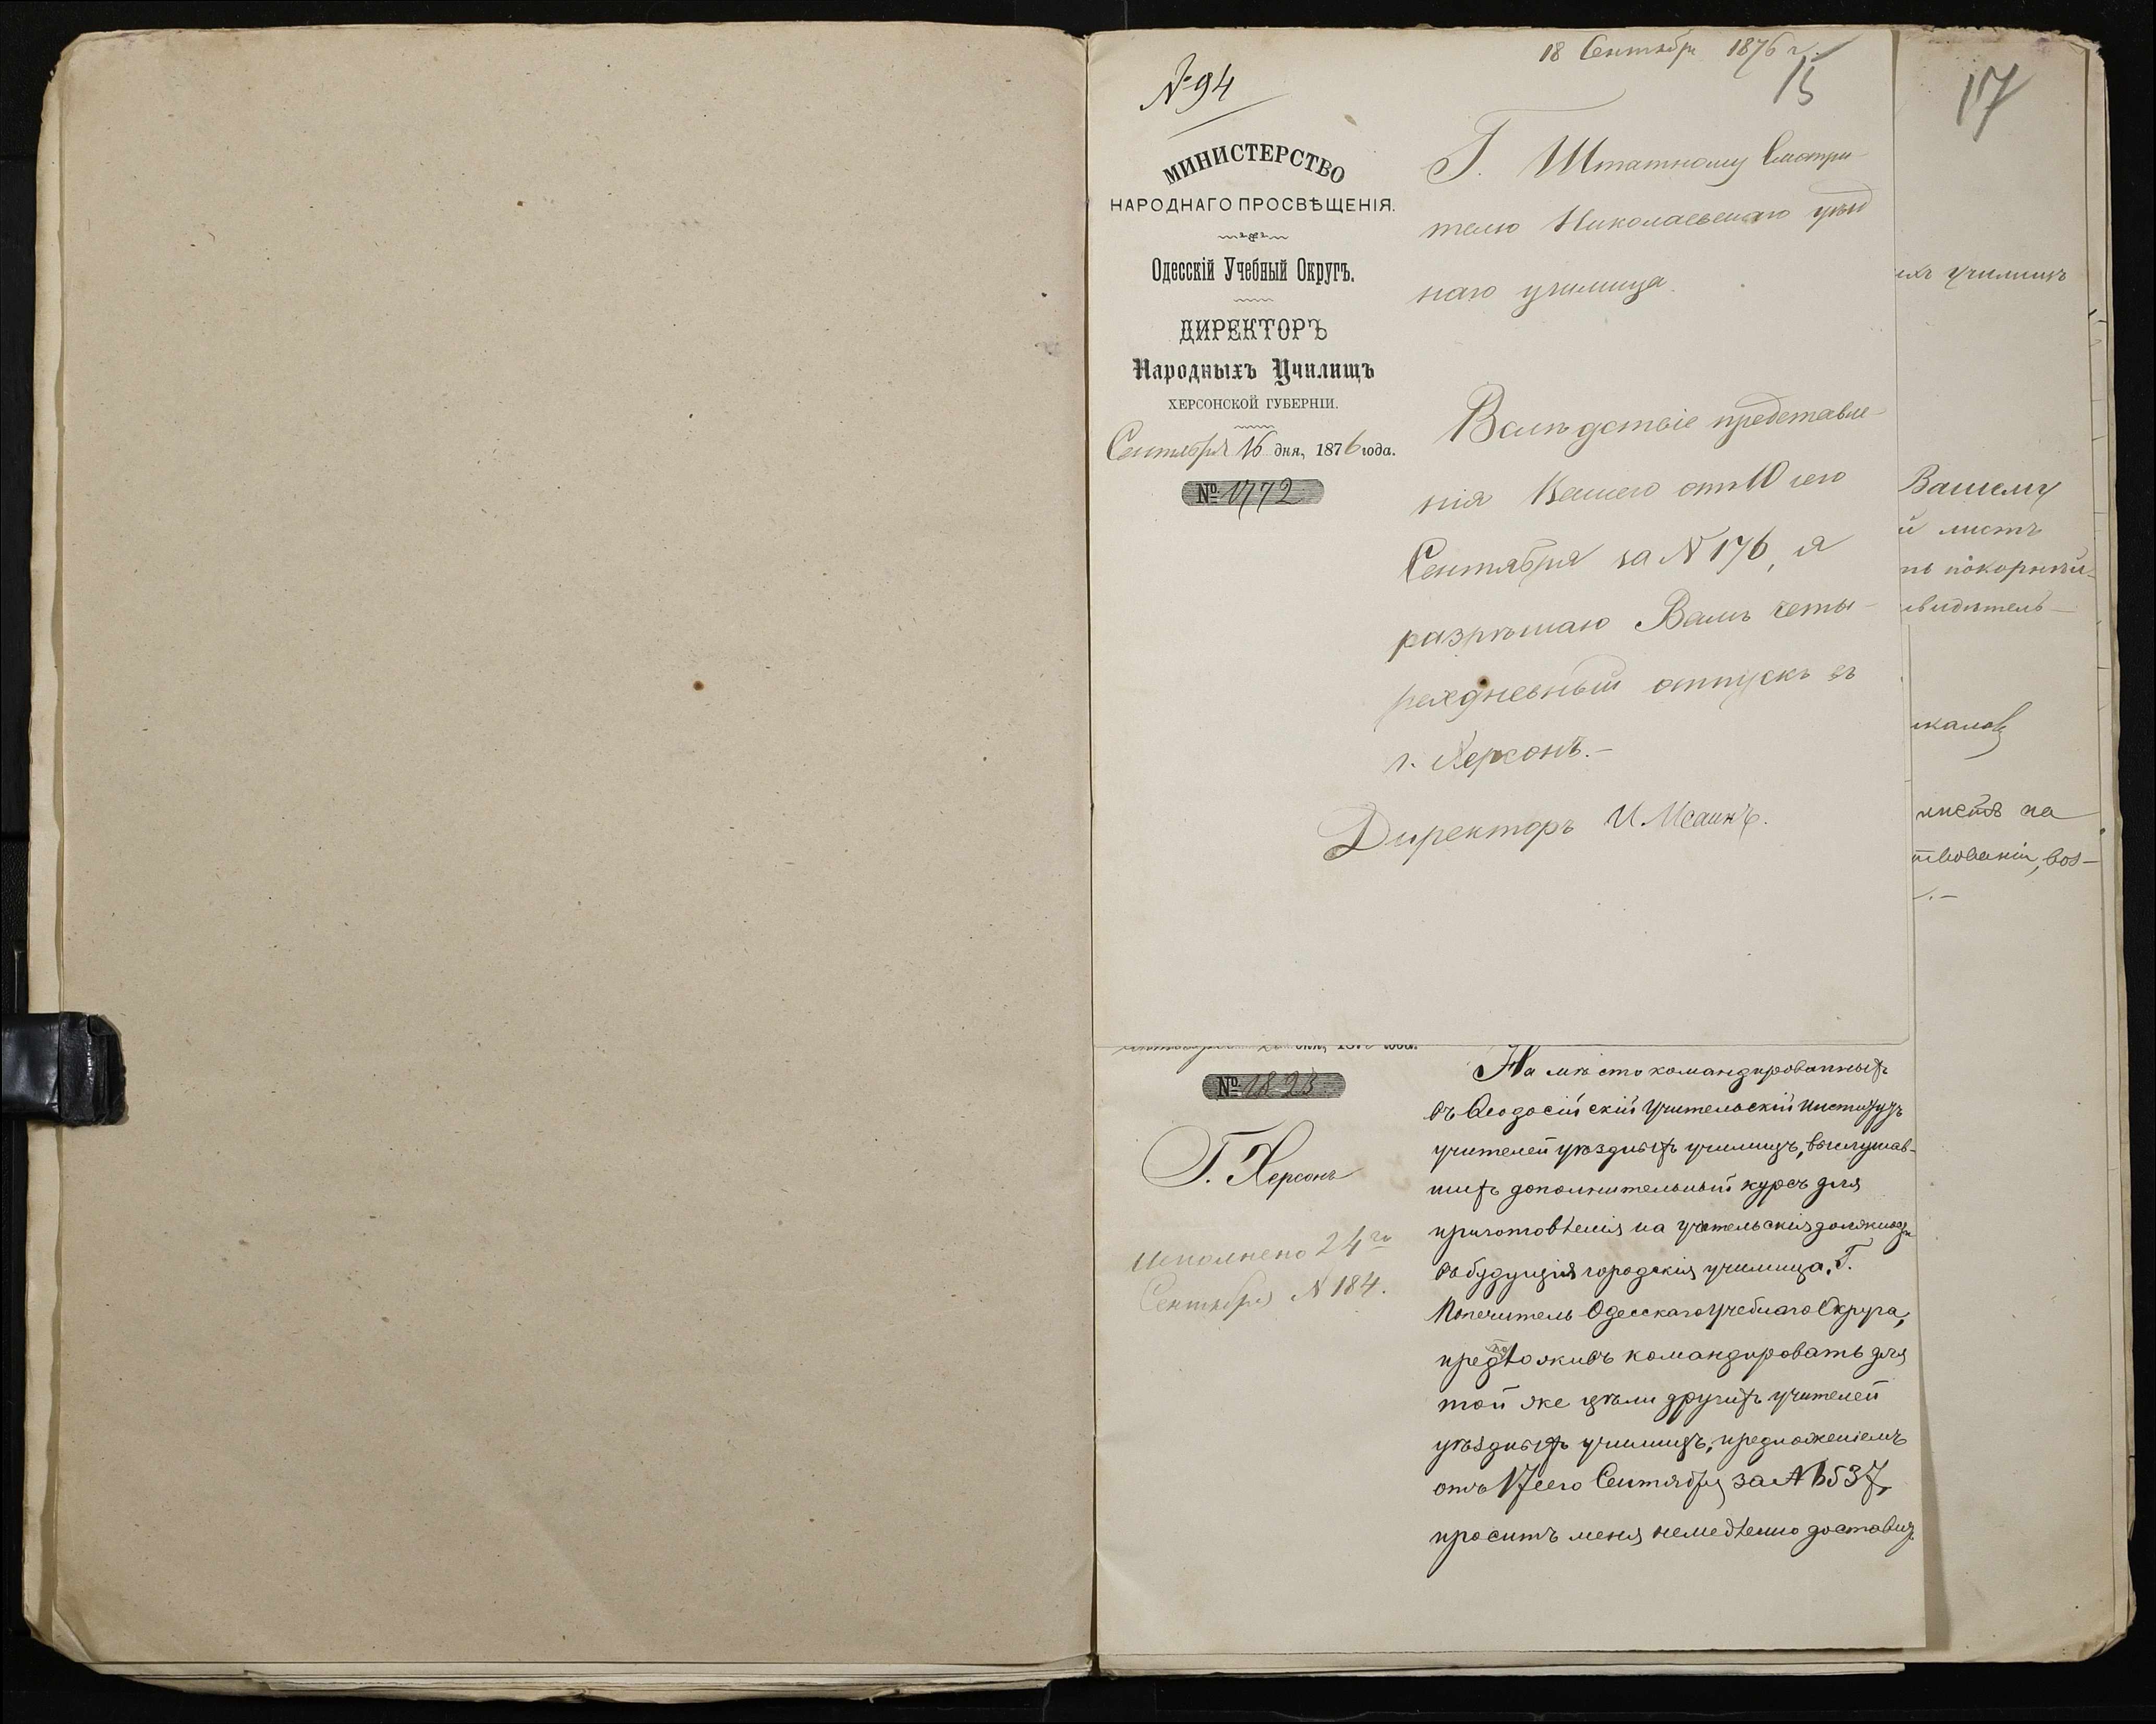 18 Сентября 1876 г.
№ 94
15
17
МИНИСТЕРСТВО
НАРОДНАГО ПРОСВѢЩЕНІЯ.
Одесскій Учебный Округъ.
ДИРЕКТОРЪ
Народныхъ Училищъ
ХЕРСОНСКОЙ ГУБЕРНІИ.
Сентября 16 дня, 1876 года.
№ 1772
Г. Штатному Смотри-
телю Николаевскаго уѣзд
наго училища.
Вслѣдствіе представле-
нія Вашего отъ 10 сего
Сентября за N 176, я
разрѣшаю Вамъ четы-
рехдневный отпускъ въ
г. Херсонъ.–
Директоръ И
ихъ училищъ
Вашему
й листъ
покорнѣй-
видѣтель-
на
воз-
дня, 187 года.
№ 1823
Г. Херсонъ
Исполнено 24го
Сентября N 184.
На мѣсто командированныхъ
въ Ѳеодосійскій Учительскій Институтъ
учителей уѣздныхъ училищъ, выслушав-
шихъ дополнительный курсъ для
приготовленія на учительскія должности
въ будущія городскія училища, Г.
Попечитель Одесскаго Учебнаго Округа,
предложивъ командировать для
той же цѣли другихъ учителей
уѣздныхъ училищъ, предложеніемъ
отъ 17 сего Сентября за № 6537,
проситъ меня немедленно доставить